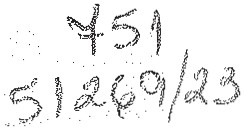 451
51269/23